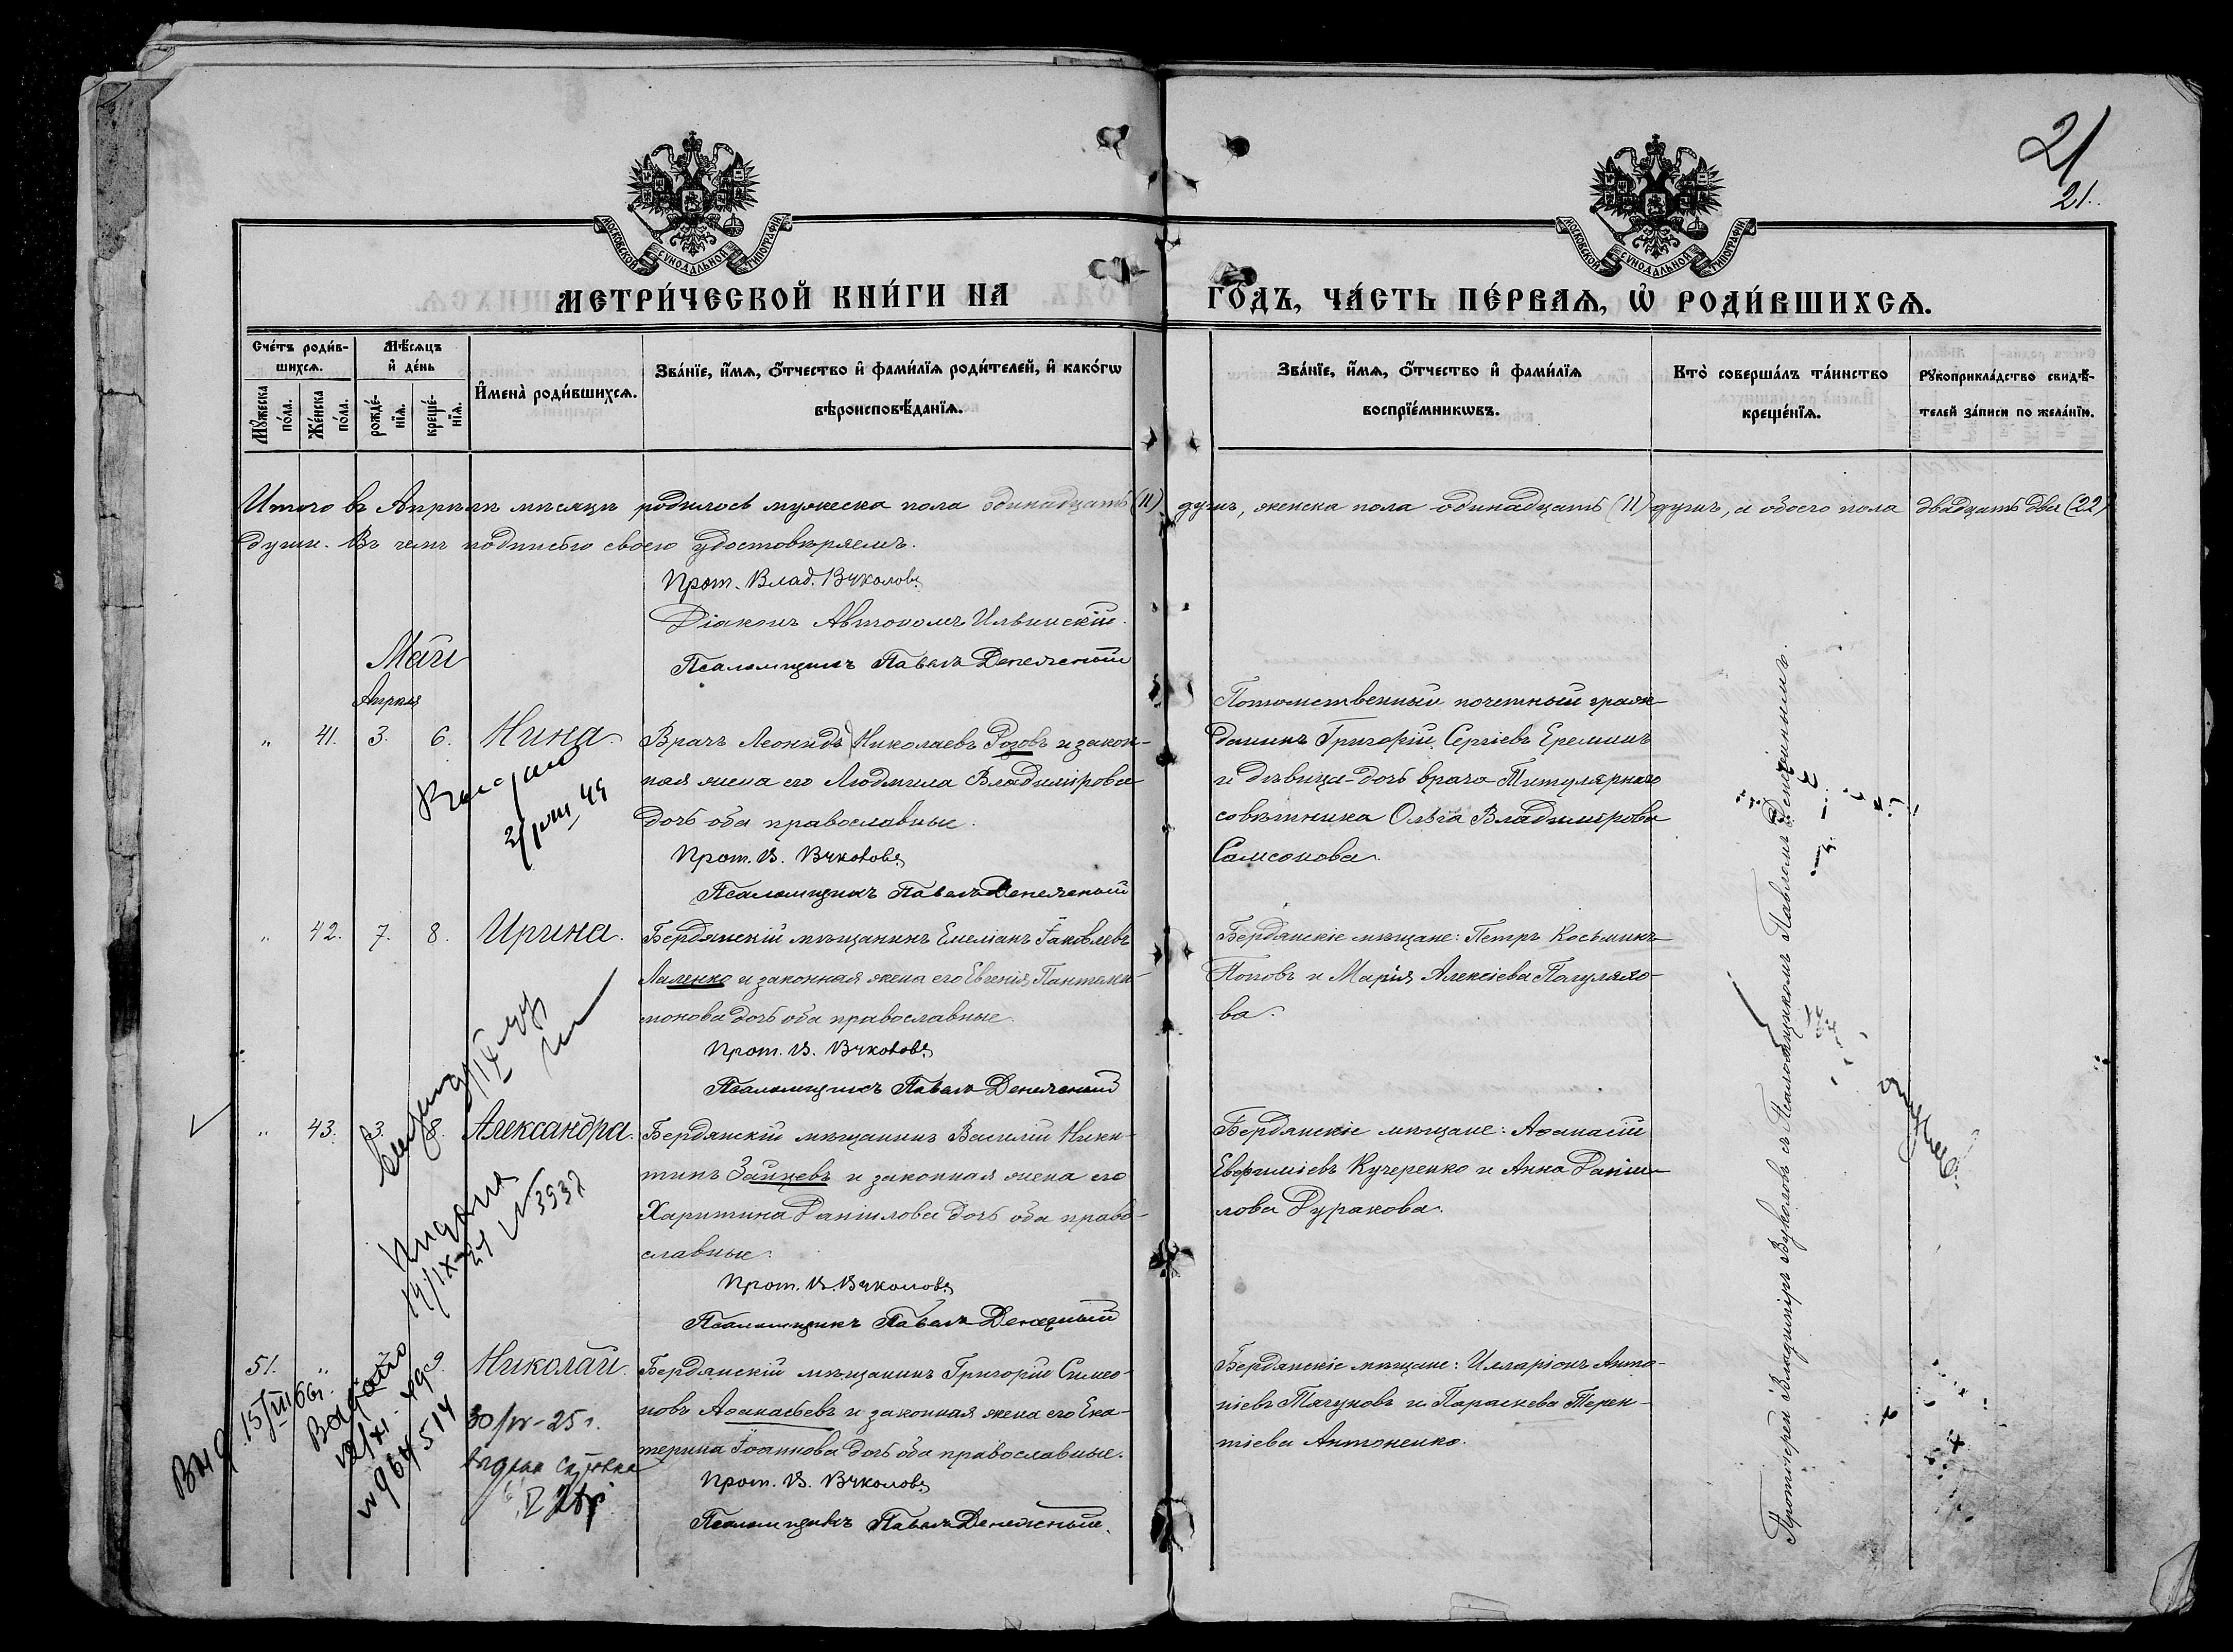 21
21.
МОСКОВСКОЙ СѴНОДАЛЬНОЙ ТИПОГРАФІИ
МОСКОВСКОЙ СѴНОДАЛЬНОЙ ТИПОГРАФІИ
МЕТРИ́ЧЕСКОЙ КНИ́ГИ НА ГО́ДЪ, ЧА́СТЬ ПЕ́РВАѦ, Ѡ҆ РОДИ́ВШИХСѦ.
Сче́тъ роди́в-
шихсѧ.
Мꙋ́жеска по́ла.
Же́нска по́ла.
Мѣ́сѧцъ
и҆ де́нь
рожде́-
нїѧ.
креще́-
нїѧ.
И҆мена̀ роди́вшихсѧ.
Зва́нїе, и҆́мѧ, ѻ҆́тчество и҆ фами́лїѧ роди́телей, и҆ како́гѡ
вѣроисповѣ́данїѧ.
Зва́нїе, и҆́мѧ, ѻ҆́тчество и҆ фами́лїѧ
воспрїе́мникѡвъ.
Кто̀ соверша́лъ та́инство
креще́нїѧ.
Рꙋкоприкла́дство свидѣ́-
телей за́писи по жела́нїю.
Итого въ Апрѣлѣ мѣсяцѣ родилось мужеска пола одинадцать (11) душъ, женска пола одинадцать (11) душъ, а обоего пола двадцать двѣ (22)
души. Въ чемъ подписью своею удостовѣряемъ.
Прот. Влад. Вуколовъ
Діаконъ Автономъ Ильинскій.
Псаломщикъ Павелъ Денежный
Май
Апрѣля
" 41. 3. 6. Нина.
Врачъ Леонидъ Николаевъ Розовъ и закон-
ная жена его Людмила Владимірова
дочь оба православные.
Прот. В. Вуколовъ
Псаломщикъ Павелъ Денежный
Потомственный почетный граж-
данинъ Григорій Сергіевъ Ереминъ
и дѣвица-дочь врача Титулярнаго
совѣтника Ольга Владимірова
Самсонова.
" 42. 7. 8. Ирина.
Бердянскій мѣщанинъ Емеліанъ Іаковлевъ
Ляленко и законная жена его Евгенія Пантелеи-
монова дочь оба православные.
Прот. В. Вуколовъ
Псаломщикъ Павелъ Денежный
Бердянскіе мѣщане: Петръ Косьминъ
Поповъ и Марія Алексіева Полуляхо-
ва.
" 43. 3. 8. Александра.
Бердянскій мѣщанинъ Василій Ники-
тинъ Зайцевъ и законная жена его
Харитина Даніилова дочь оба право-
славные.
Прот. В. Вуколовъ
Псаломщикъ Павелъ Денежный
Бердянскіе мѣщане: Аѳанасій
Евѳиміевъ Кучеренко и Анна Даніи-
лова Дуракова.
51. " 9. Николай.
Бердянскій мѣщанинъ Григорій Симео-
новъ Аѳанасьевъ и законная жена его Ека-
терина Іоаннова дочь оба православные.
Прот. В. Вуколовъ
Псаломщикъ Павелъ Денежный.
Бердянскіе мѣщане: Илларіонъ Анто-
ніевъ Тягуновъ и Параскева Терен-
тіева Антоненко.
Протоіерей Владиміръ Вуколовъ съ Псаломщикомъ Павломъ Денежнымъ.
30/IV-25г.